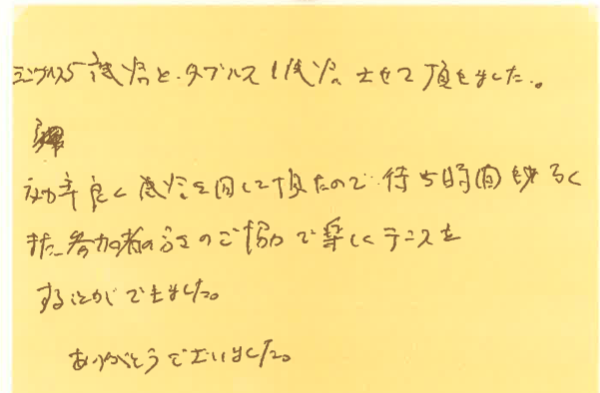 シングルス5試合と、ダブルス1試合させて頂きました。
効率良く試合を回して頂たので待ち時間も少なく
また参加者の方々のご協力で楽しくテニスを
することができました。
ありがとうございました。